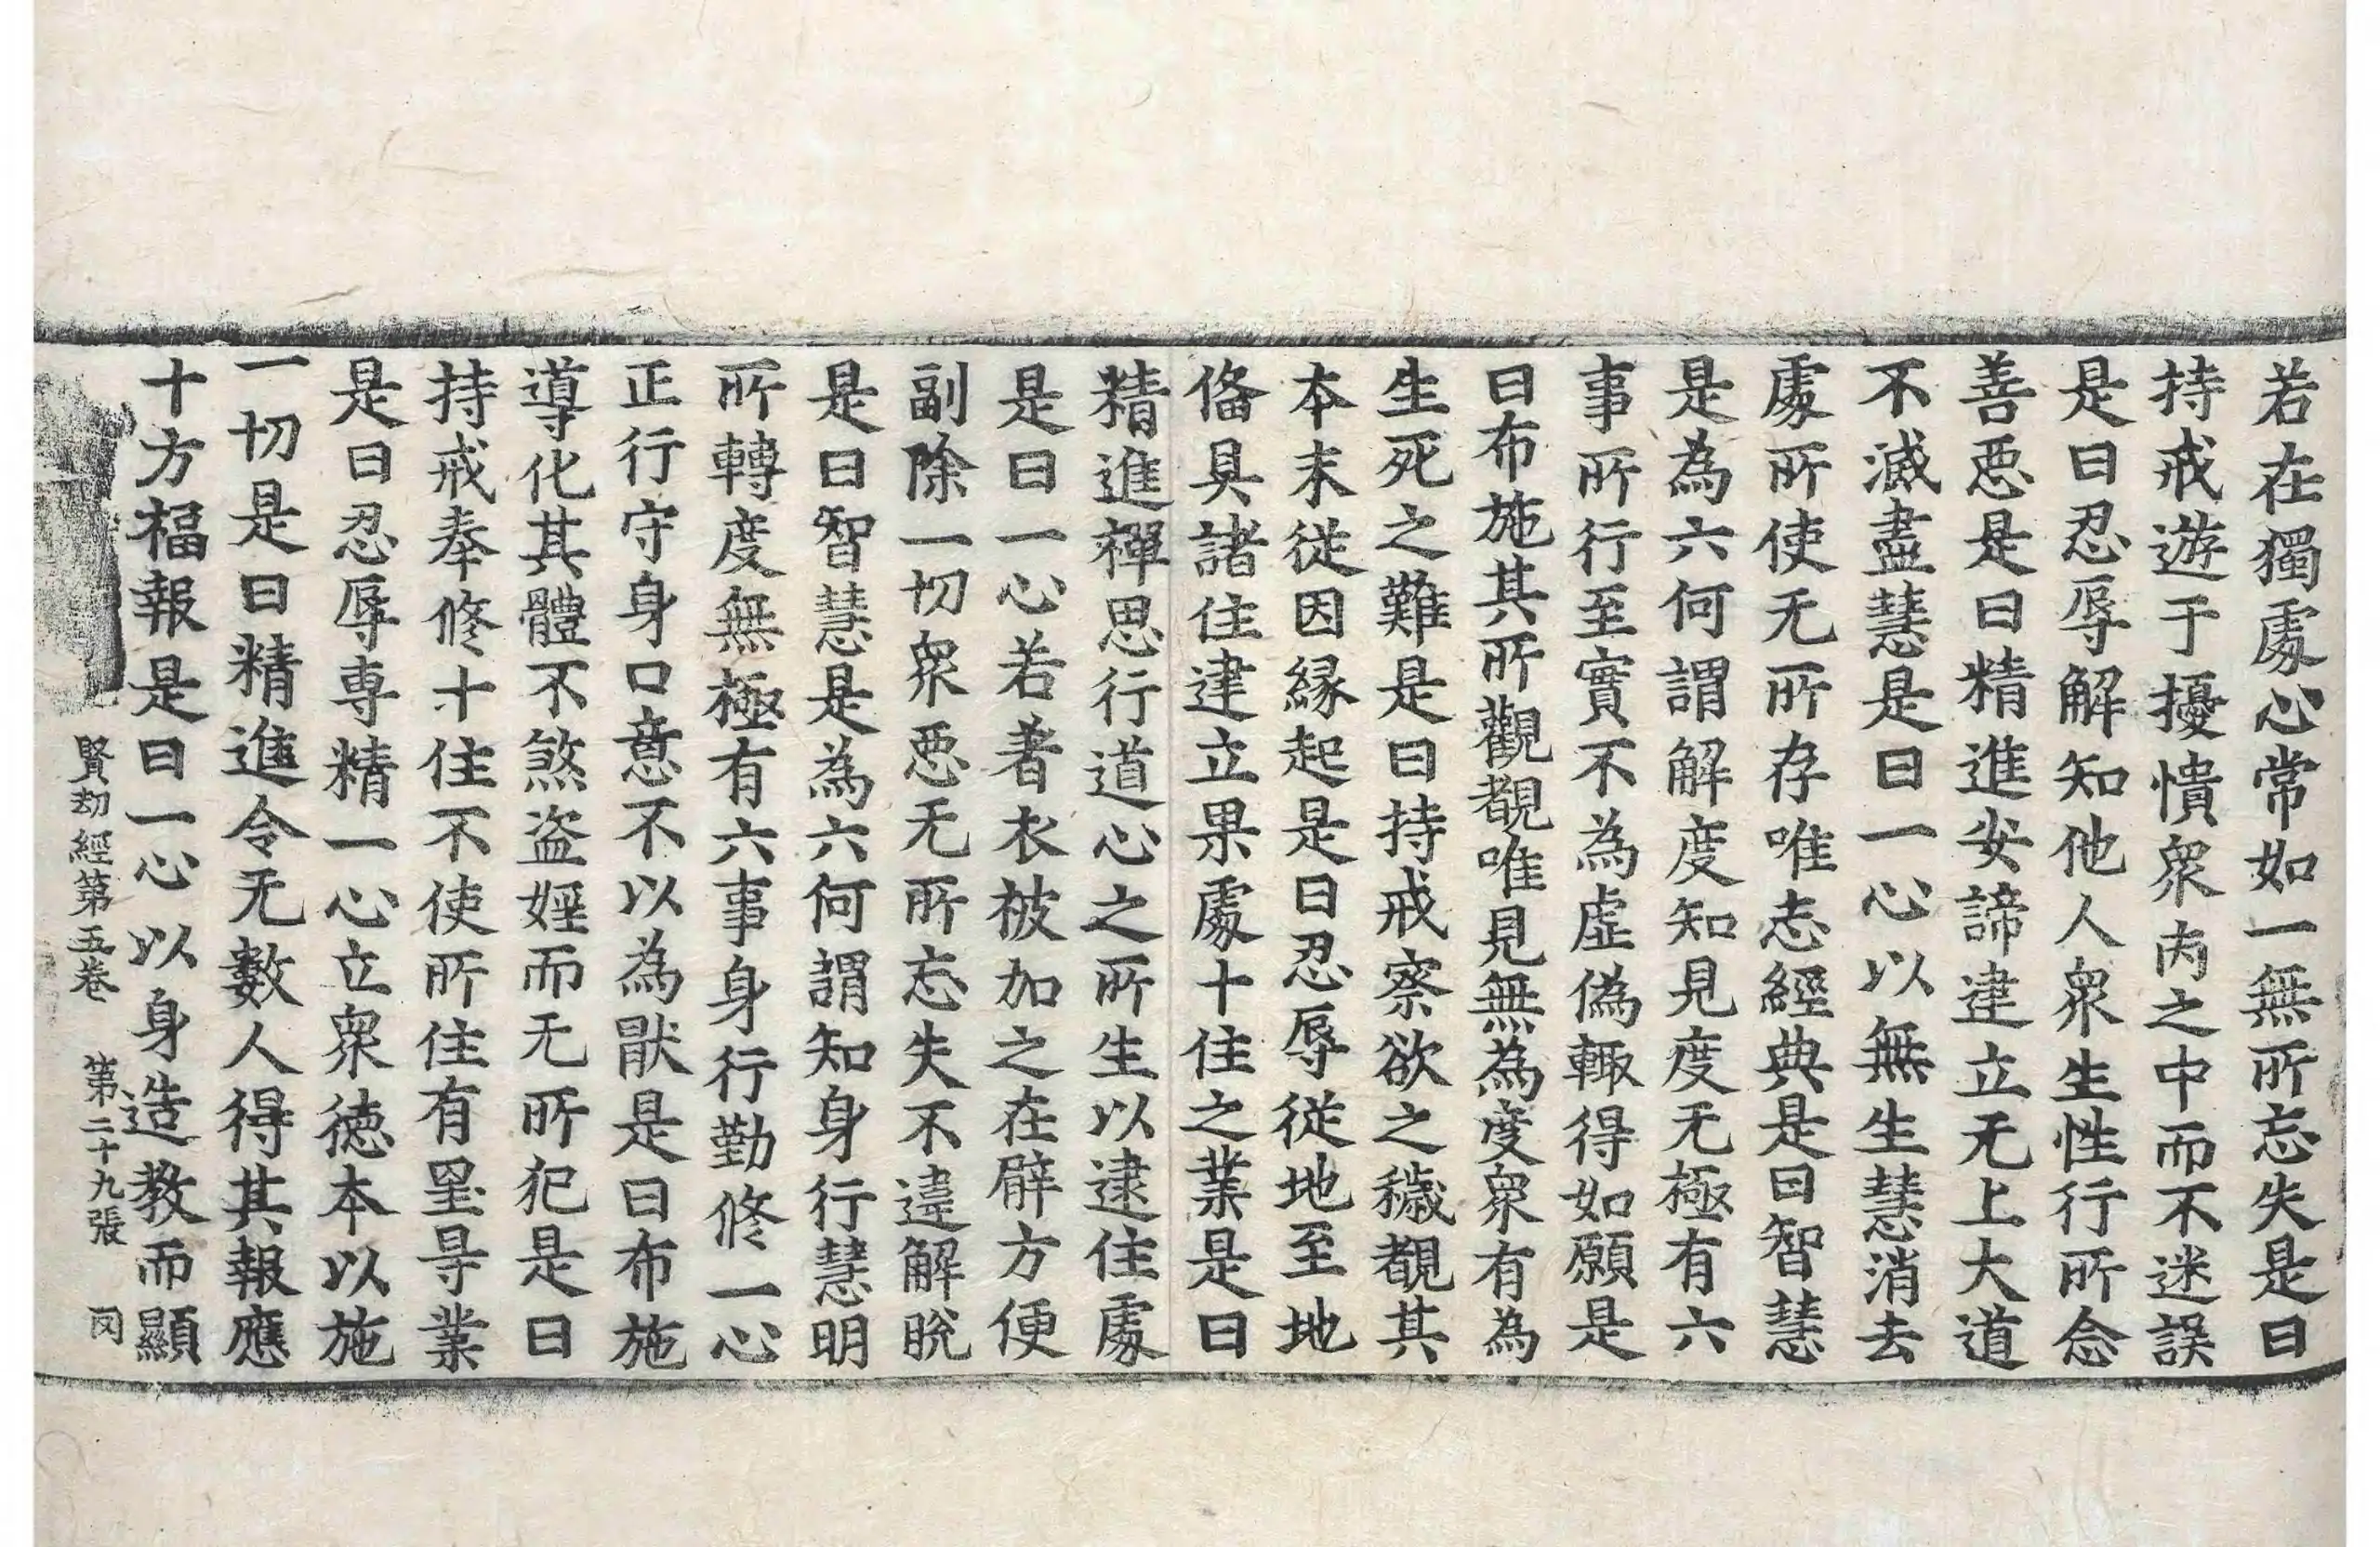 若在獨處心常如一無所忘失是曰
持戒遊于擾憒衆內之中而不迷誤
是曰忍辱解知他人衆生性行所念
善惡是曰精進安諦建立无上大道
不滅盡慧是曰一心以無生慧消去
處所使无所存唯志經典是曰智慧
是為六何謂解度知見度无極有六
事所行至實不為虛偽輙得如願是
曰布施其所觀覩唯見無為度衆有為
生死之難是曰持戒察欲之穢覩其
本末從因緣起是曰忍辱從地至地
俻具諸住建立果處十住之業是曰
精進禪思行道心之所生以逮住處
是曰一心若著衣被加之在臂方便
副除一切衆惡无所忘失不違解脫
是曰智慧是為六何謂知身行慧明
所轉度無極有六事身行勤修一心
正行守身口意不以為猒是曰布施
導化其體不煞盜婬而无所犯是曰
持戒奉修十住不使所住有罣㝵業
是曰忍辱専精一心立衆徳本以施
一切是曰精進令无數人得其報應
十方福報是曰一心以身造教而顯
賢劫經第五卷 第二十九張 罔